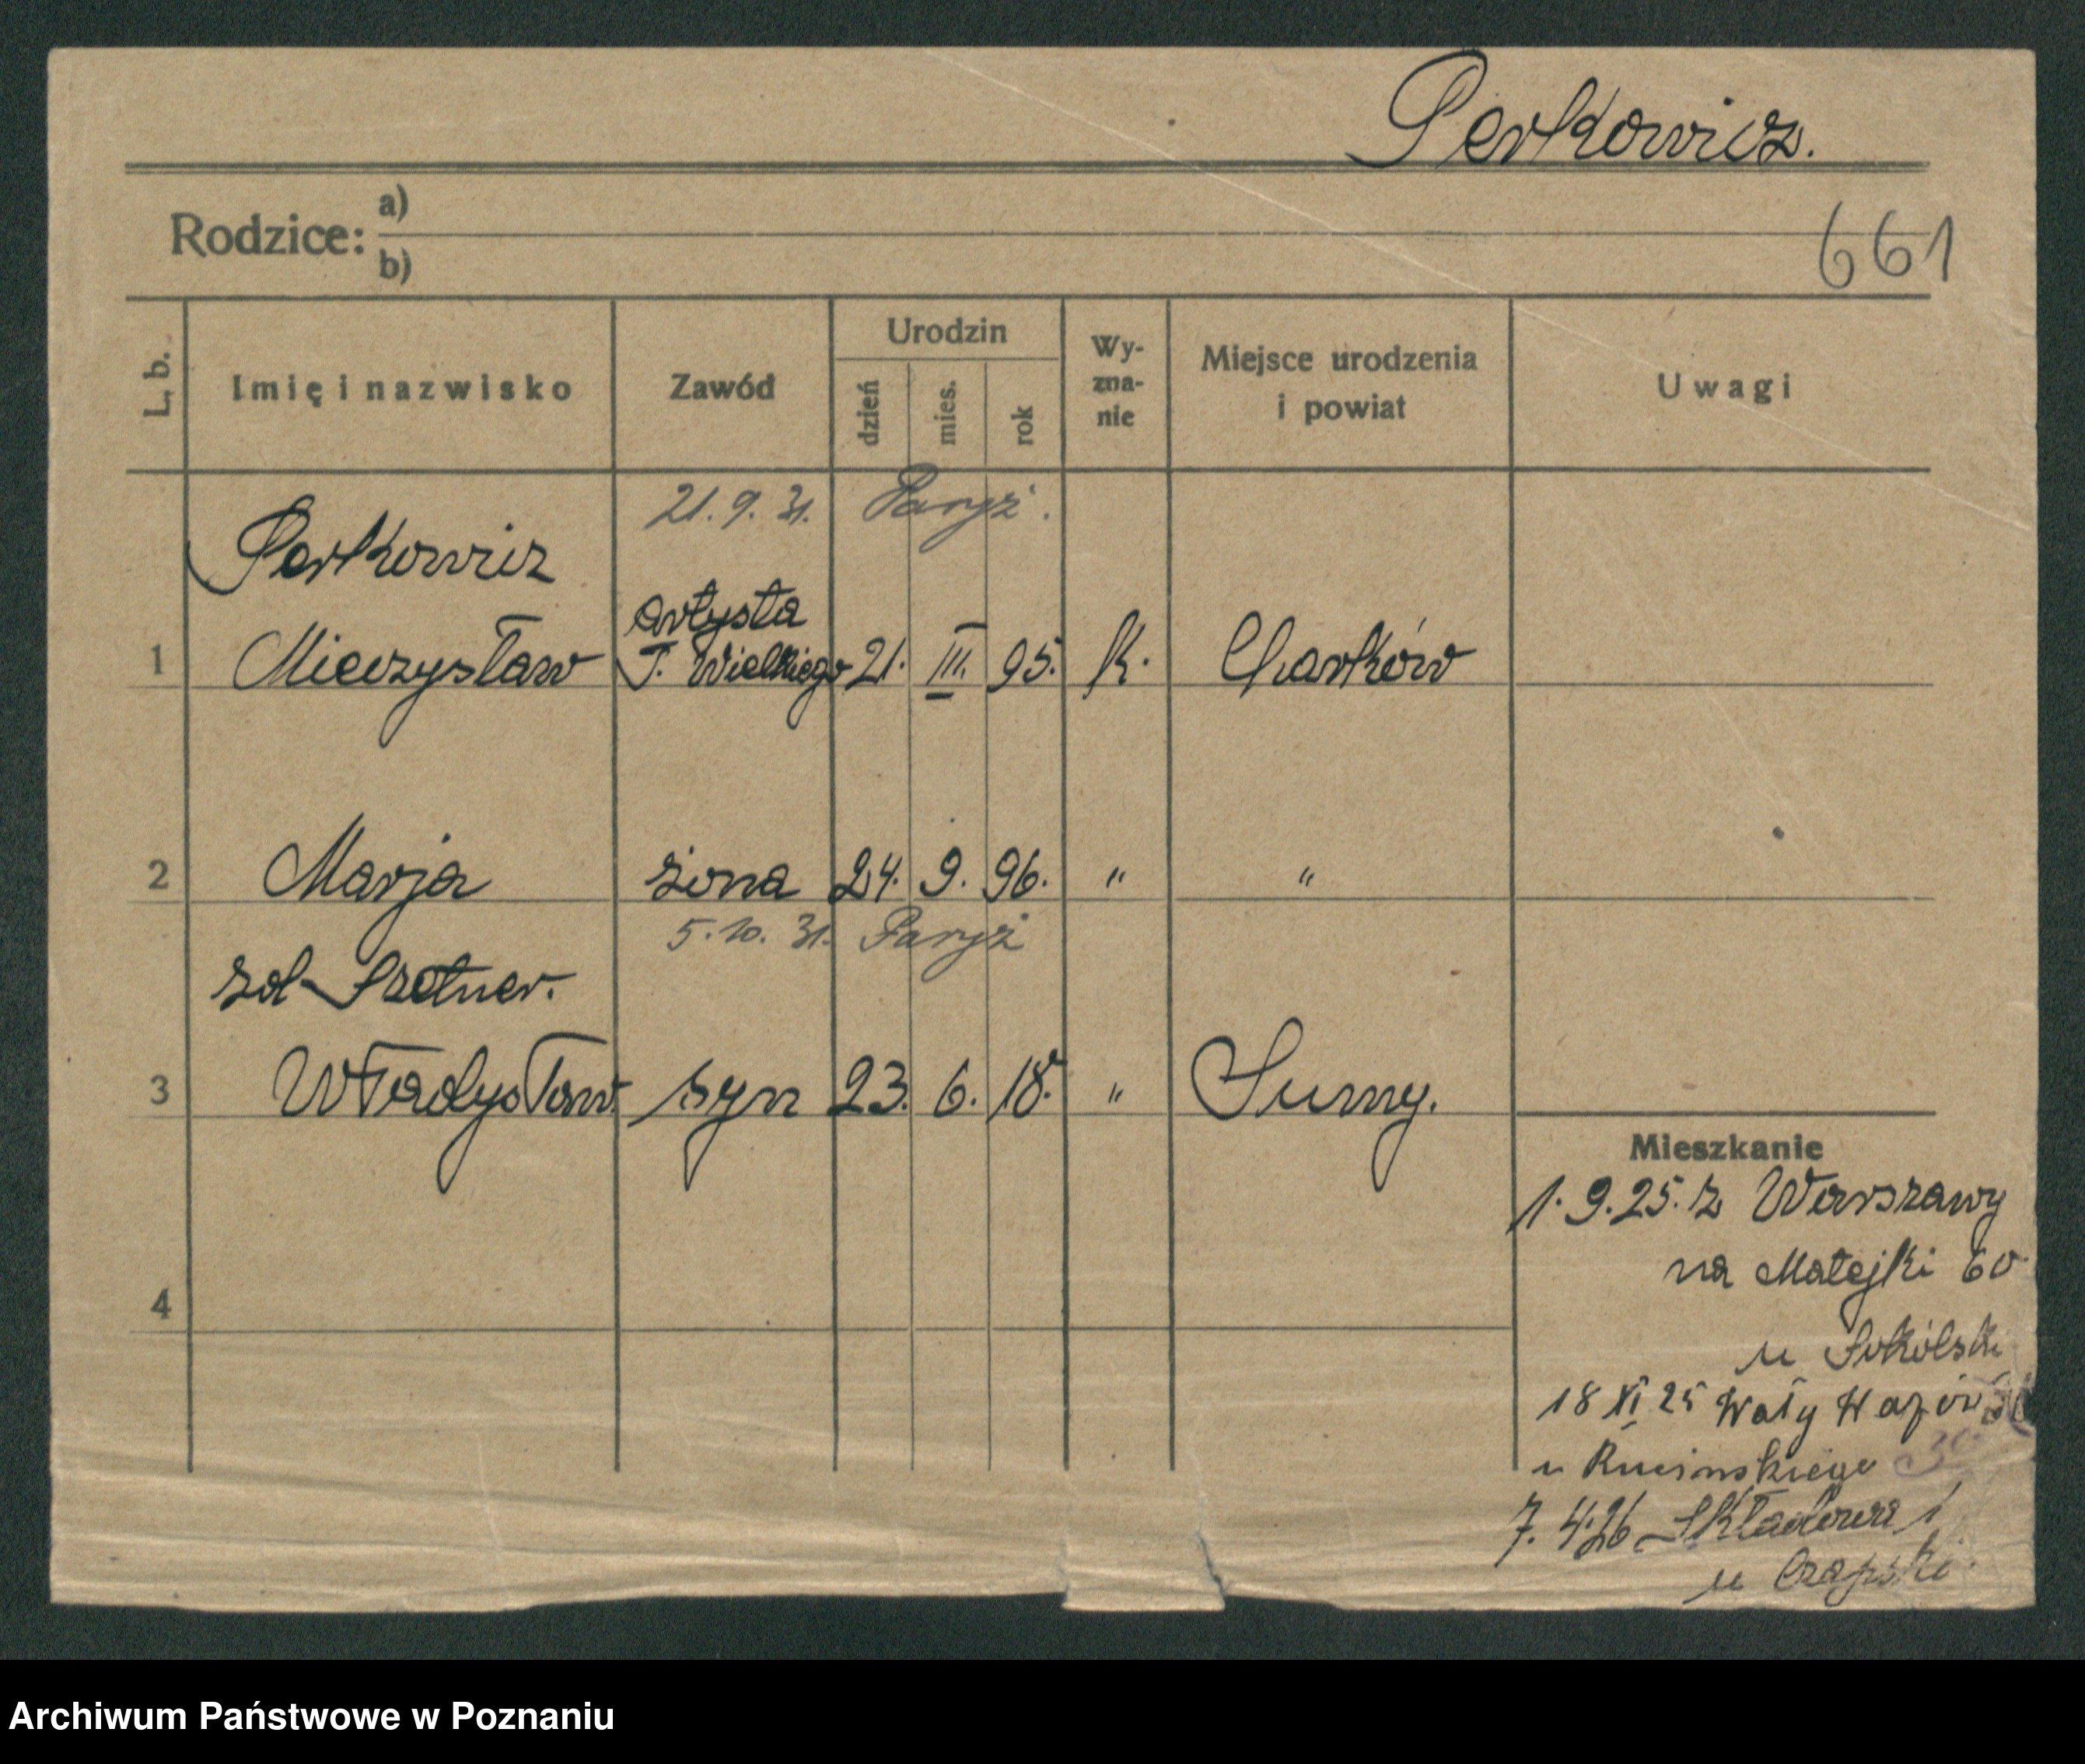 Perkowicz.
Rodzice: a)
b)
661
L. b.
Imię i nazwisko
Zawód
Urodzin
dzień
mies.
rok
Wy-
zna-
nie
Miejsce urodzenia
i powiat
Uwagi
21. 9. 31. Paryż.
Perkowicz
artysta
1 Mieczysław T. Wielkiego 21. III. 95. K. Charków
2 Marja żona 24. 9. 96. " "
5. 10. 31. Paryż
zd Szetner.
3 Władysław syn 23. 6. 18. " Sumy.
Mieszkanie
1. 9. 25. z Warszawy
na Matejki 60
u Sokólski
4
18 XI 25 Wały Wazów
u Rucinskiego
7. 4. 26 Składowa 1
u Czapski.
Archiwum Państwowe w Poznaniu